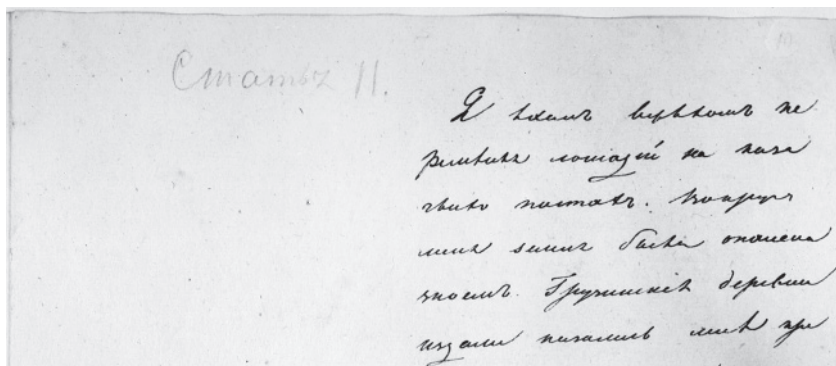 Статья II.
Я ѣхалъ верьхомъ пе
ремѣняя лошадей на каза
чьихъ постахъ. Вокругъ
меня земля была опалена
зноемъ. Грузинскія деревни
издали казались мнѣ пре